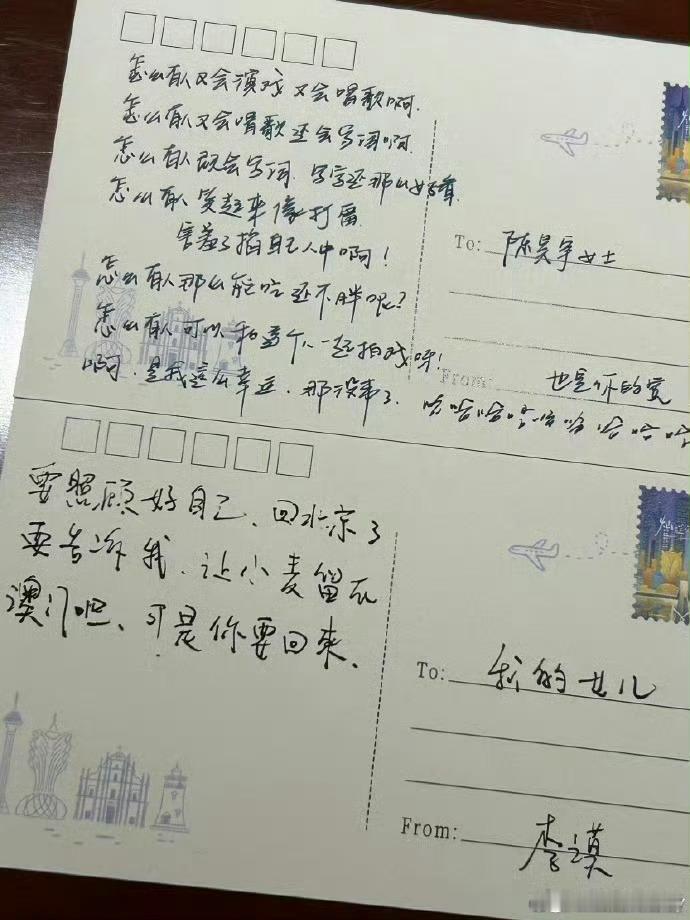 怎么有人又会演戏又会唱歌啊.
怎么有人又会唱歌还会写词啊.
怎么有人既会写词.写字还那么好看.
怎么有人笑起来像打雷
害羞了掐自己人中啊!
怎么有人那么能吃还不胖呢?
怎么有人可以和这个人一起拍戏呀!
啊.是我这么幸运.那没事了.哈哈哈哈哈哈哈哈哈
To: 陈昊宇女士
From: 也是你的宽
要照顾好自己、回北京了
要告诉我.让小麦留在
澳门吧、可是你要回来.
To: 我的女儿
From: 李漠